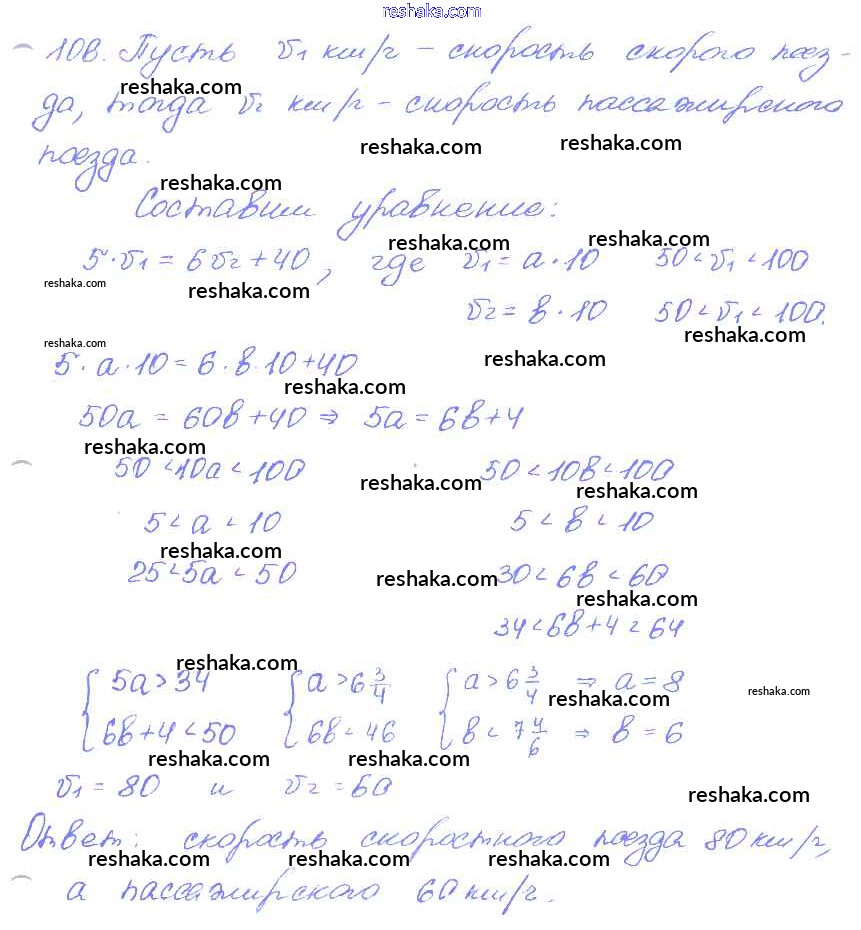 reshaka.com
108. Пусть v₁ км/ч – скорость скорого поез-
reshaka.com
да, тогда v₂ км/ч – скорость пассажирского
reshaka.com reshaka.com
поезда.
reshaka.com
Составим уравнение:
reshaka.com reshaka.com
5·v₁ = 6v₂ + 40, где v₁ = a·10 50 < v₁ < 100
reshaka.com reshaka.com
v₂ = b·10 50 < v₁ < 100.
reshaka.com reshaka.com
5·a·10 = 6·b·10 + 40
reshaka.com reshaka.com
50a = 60b + 40 ⇒ 5a = 6b + 4
reshaka.com
50 < 10a < 100 50 < 10b < 100
reshaka.com reshaka.com
5 < a < 10 5 < b < 10
reshaka.com
25 < 5a < 50 30 < 6b < 60
reshaka.com reshaka.com
34 < 6b + 4 < 64
reshaka.com
{ 5a > 34 { a > 6 3/4 { a > 6 3/4 ⇒ a = 8
reshaka.com reshaka.com
6b + 4 < 50 6b < 46 b < 7 4/6 ⇒ b = 6
reshaka.com reshaka.com
v₁ = 80 и v₂ = 60
reshaka.com
Ответ: скорость скоростного поезда 80 км/ч,
reshaka.com reshaka.com reshaka.com
а пассажирского 60 км/ч.